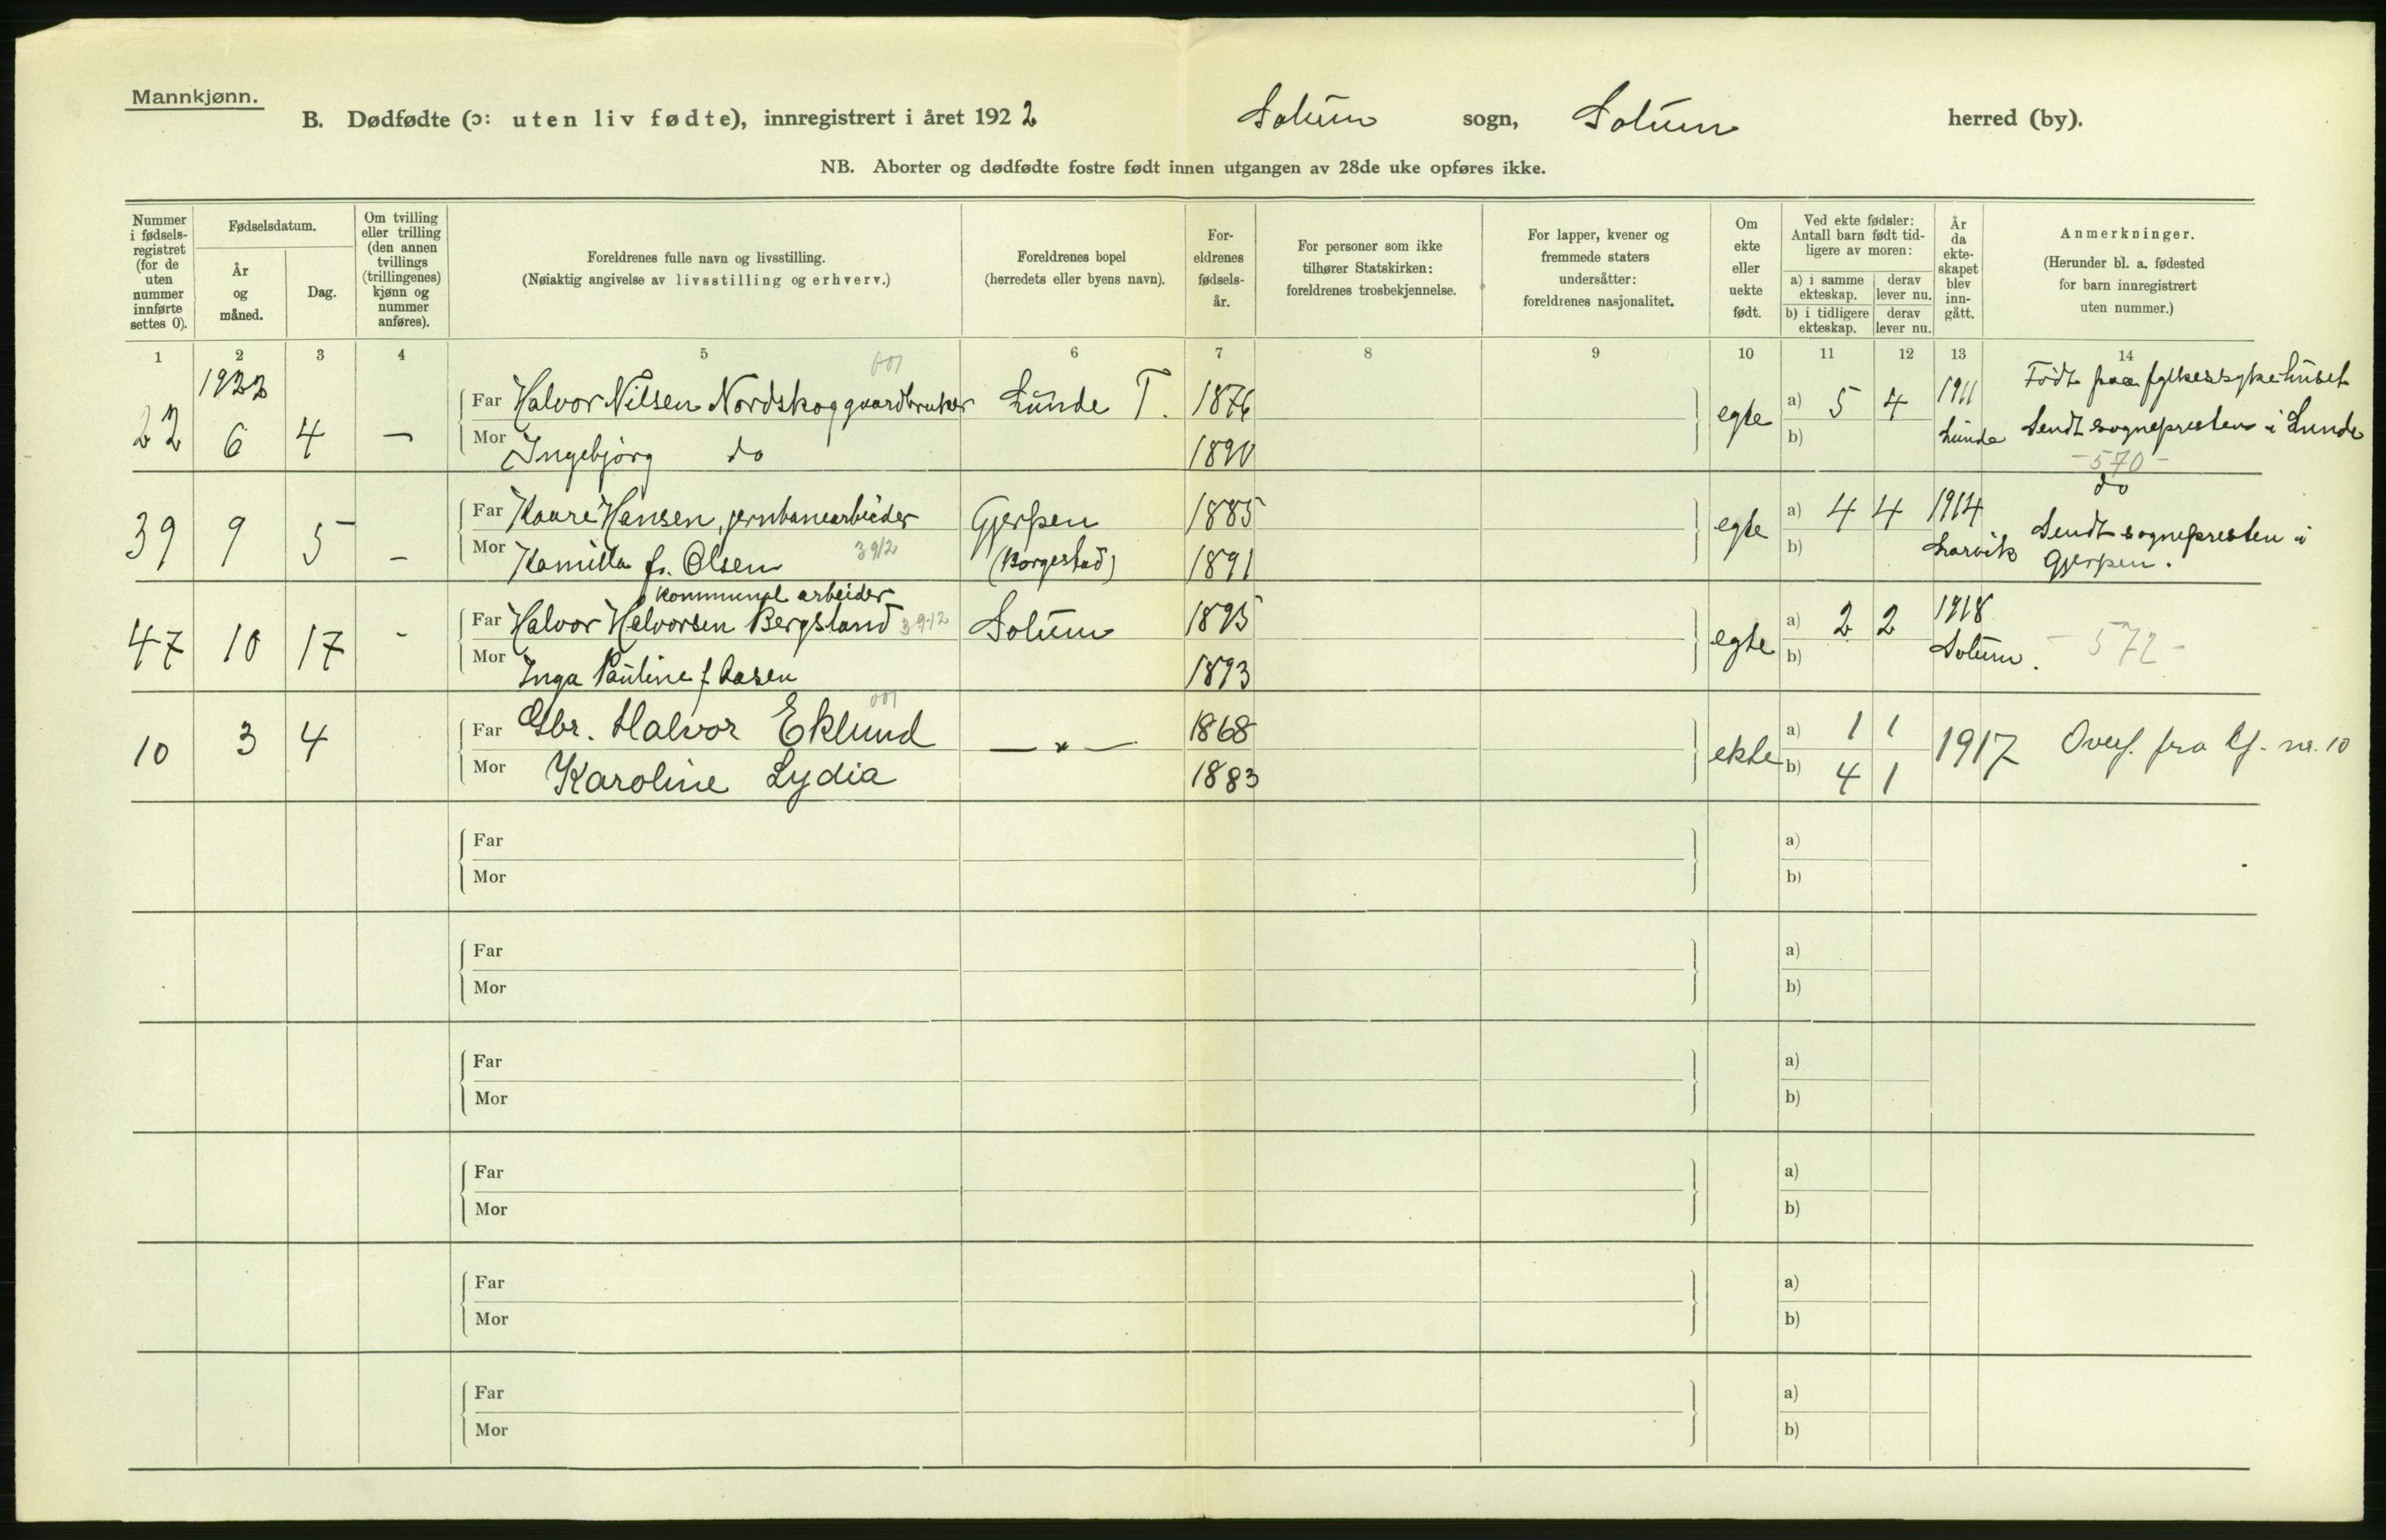 Mannkjønn.
B. Dødfødte (ɔ: uten liv fødte), innregistrert i året 1922 Solum sogn, Solum herred (by).
NB. Aborter og dødfødte fostre født innen utgangen av 28de uke opføres ikke.
Nummer i fødsels-registret (for de uten nummer innførte settes 0).
Fødselsdatum.
År og måned.
Dag.
Om tvilling eller trilling (den annen tvillings (trillingenes) kjønn og nummer anføres).
Foreldrenes fulle navn og livsstilling.
(Nøiaktig angivelse av livsstilling og erhverv.)
Foreldrenes bopel
(herredets eller byens navn).
For-eldrenes fødsels-år.
For personer som ikke tilhører Statskirken: foreldrenes trosbekjennelse.
For lapper, kvener og fremmede staters undersåtter: foreldrenes nasjonalitet.
Om ekte eller uekte født.
Ved ekte fødsler: Antall barn født tid-ligere av moren:
a) i samme ekteskap.
derav lever nu.
b) i tidligere ekteskap.
derav lever nu.
År da ekte-skapet blev inn-gått.
Anmerkninger.
(Herunder bl. a. fødested for barn innregistrert uten nummer.)
1 2 3 4 5 6 7 8 9 10 11 12 13 14
1922
22 6 4 —
Far Halvor Nilsen Nordskog gaardbruker Lunde T. 1876 egte a) 5 4 1911 Født paa fylkessykehuset
Mor Ingebjørg do 1890 b) Lunde Sendt sognepresten i Lunde
-570-
do
39 9 5 —
Far Kaare Hansen, jernbanearbeider Gjerpen 1885 egte a) 4 4 1914 Sendt sognepresten i
Mor Kamilla f. Olsen 3912 (Borgestad) 1891 b) Larvik Gjerpen.
kommunal arbeider
47 10 17 -
Far Halvor Halvorsen Bergsland 39-12 Solum 1895 egte a) 2 2 1918
Mor Inga Pauline f. Aasen 1893 b) Solum. - 572 -
10 3 4
Far Gbr. Halvor Eklund — " — 1868 ekte a) 1 1 1917 Overf. fra lf. nr. 10
Mor Karoline Lydia 1883 b) 4 1
Far a)
Mor b)
Far a)
Mor b)
Far a)
Mor b)
Far a)
Mor b)
Far a)
Mor b)
Far a)
Mor b)